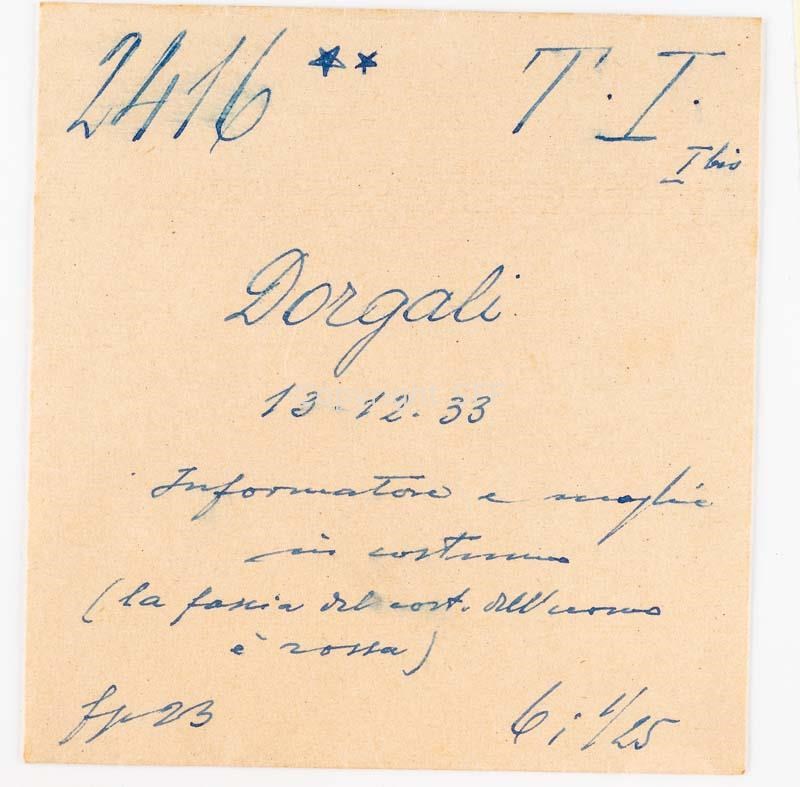 2416 ** T. I.
I bis
Dorgali
13-12-33
Informatore e moglie
in costume
(la fascia del cost. dell'uomo
è rossa)
fp 23 6; 1/25